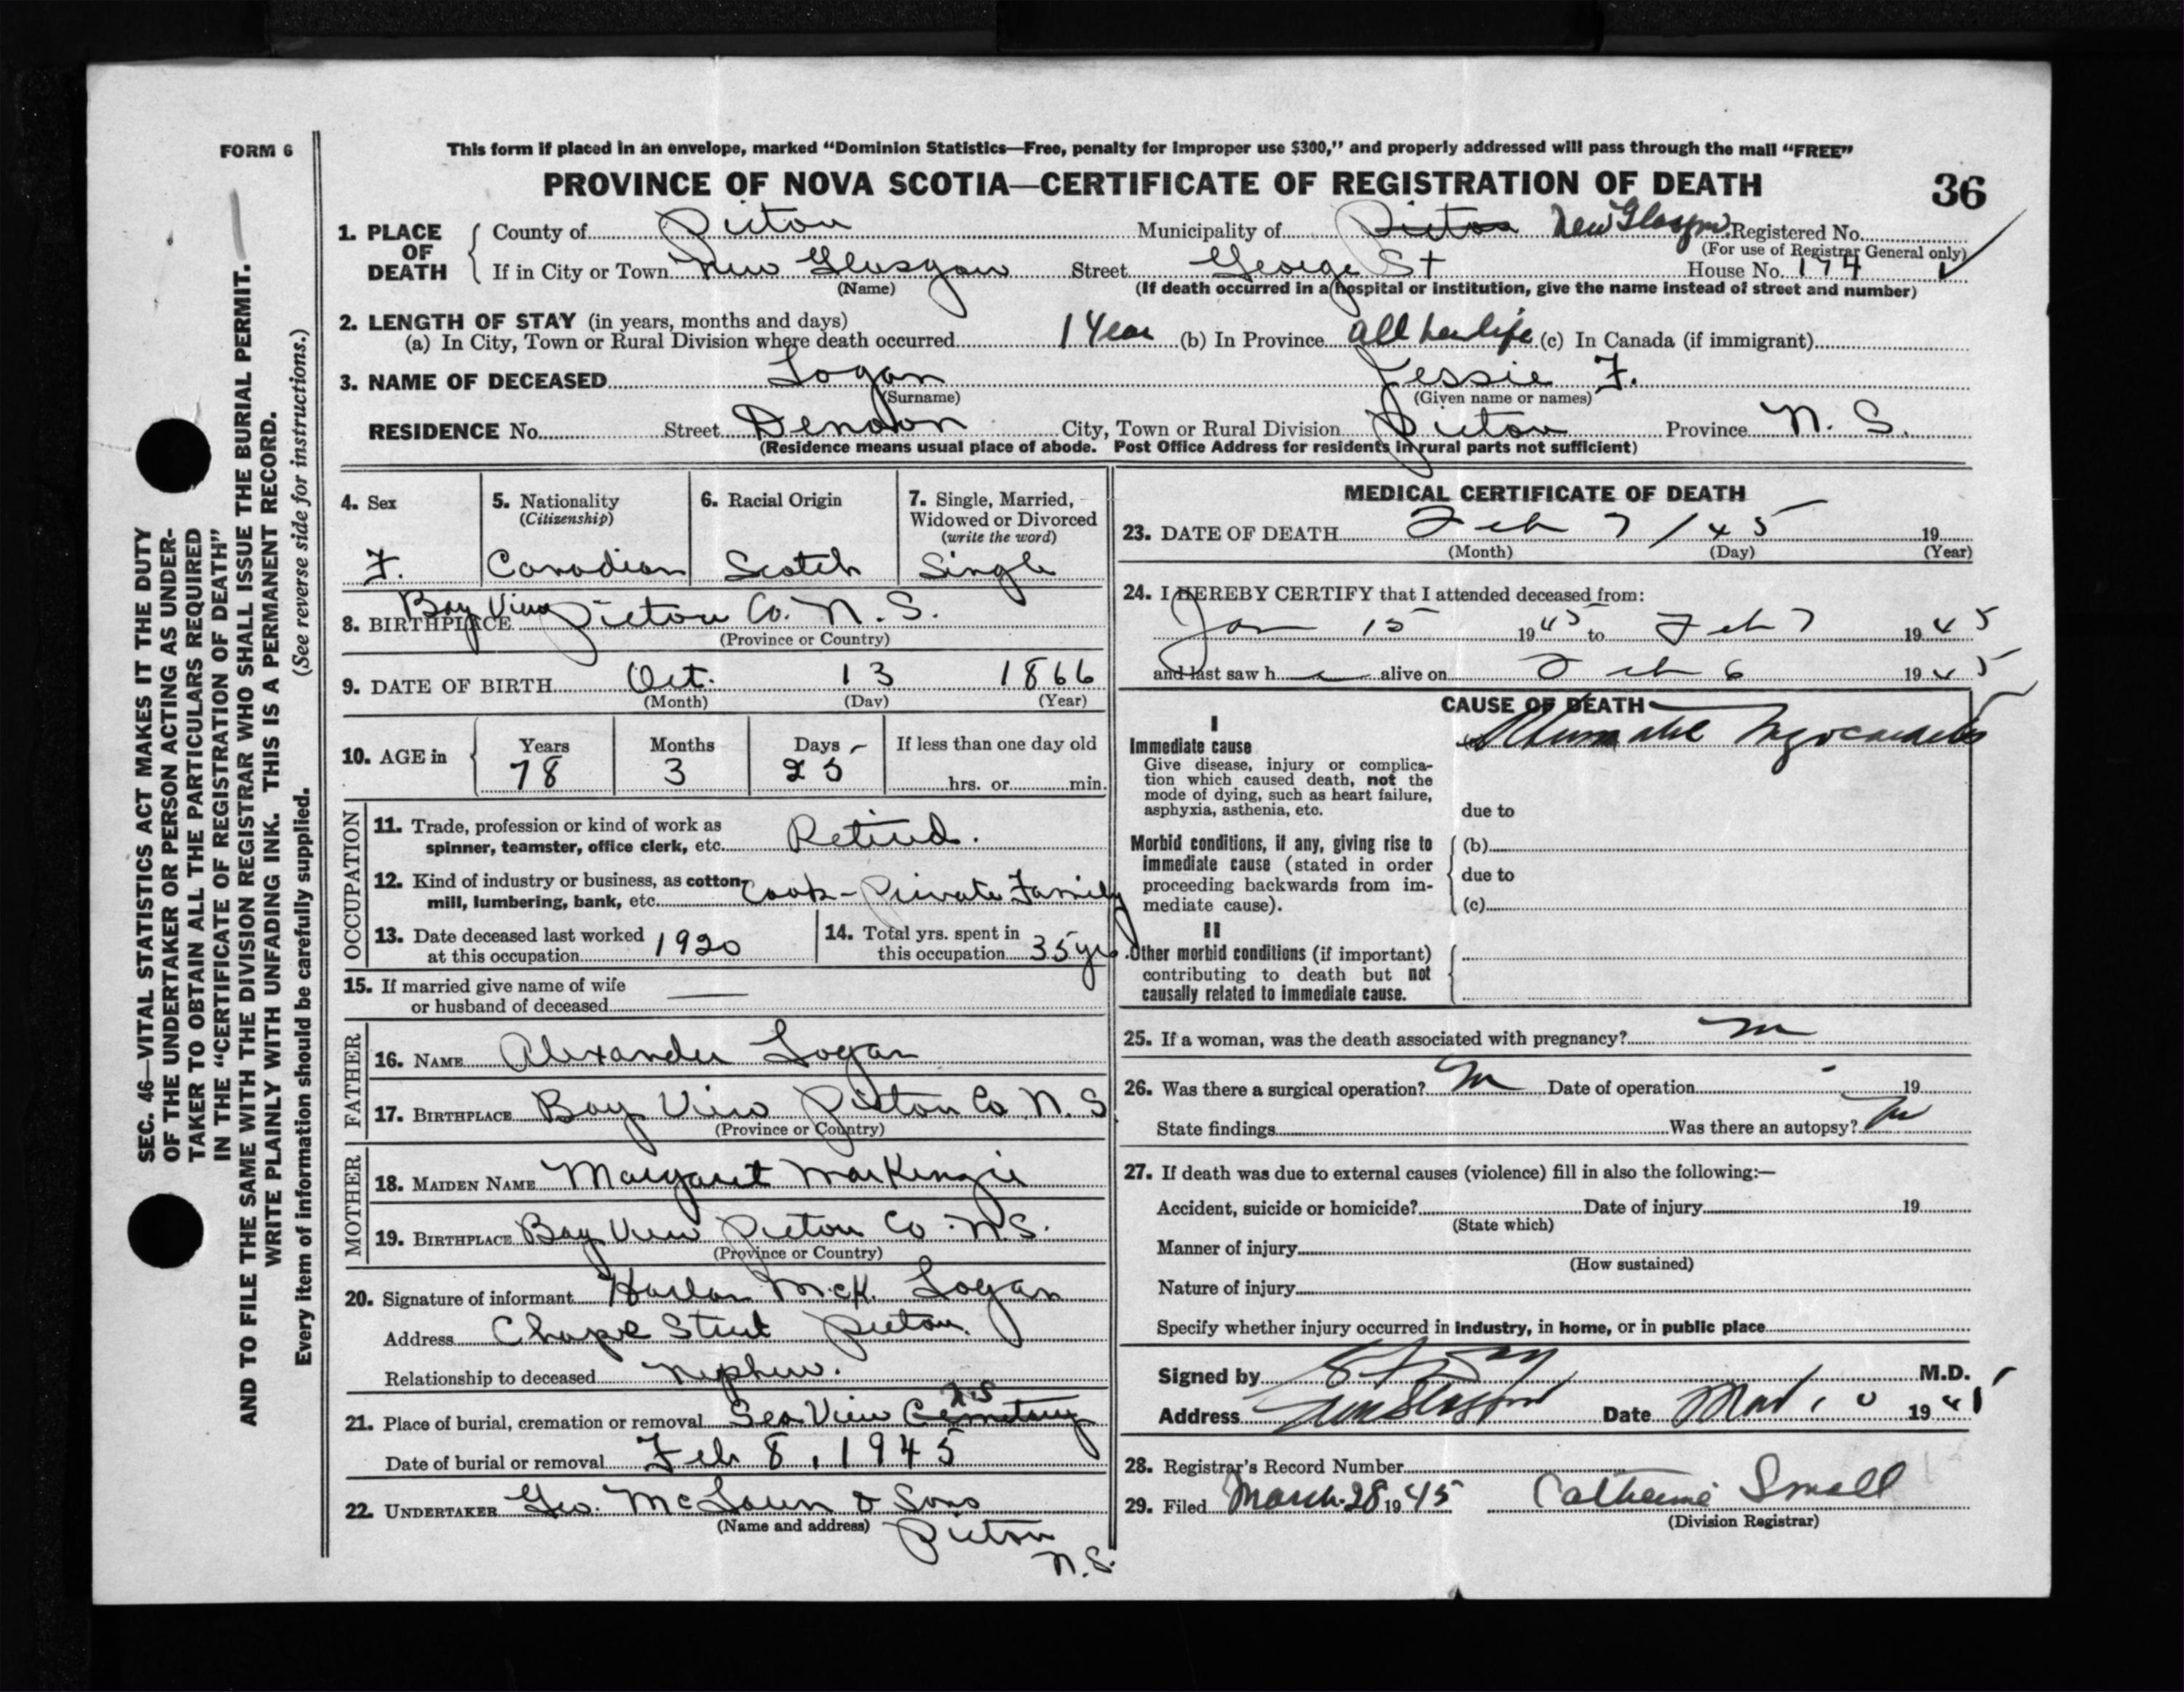 FORM 6
This form if placed in an envelope, marked “Dominion Statistics—Free, penalty for improper use $300,” and properly addressed will pass through the mail “FREE”
PROVINCE OF NOVA SCOTIA—CERTIFICATE OF REGISTRATION OF DEATH
36
1. PLACE OF DEATH
County of Pictou Municipality of Pictou New Glasgow Registered No.
(For use of Registrar General only)
If in City or Town New Glasgow Street George St House No. 174
(Name) (If death occurred in a hospital or institution, give the name instead of street and number)
2. LENGTH OF STAY (in years, months and days)
(a) In City, Town or Rural Division where death occurred 1 Year (b) In Province all her life (c) In Canada (if immigrant)
3. NAME OF DECEASED Logan Jessie F.
(Surname) (Given name or names)
RESIDENCE No. Street Denoon City, Town or Rural Division Pictou Province N. S.
(Residence means usual place of abode. Post Office Address for residents in rural parts not sufficient)
4. Sex
F.
5. Nationality
(Citizenship)
Canadian
6. Racial Origin
Scotch
7. Single, Married,
Widowed or Divorced
(write the word)
Single
8. BIRTHPLACE Bay View Pictou Co. N. S.
(Province or Country)
9. DATE OF BIRTH Oct. 13 1866
(Month) (Day) (Year)
10. AGE in
Years Months Days If less than one day old
78 3 25 hrs. or min.
OCCUPATION
11. Trade, profession or kind of work as
spinner, teamster, office clerk, etc. Retired.
12. Kind of industry or business, as cotton
mill, lumbering, bank, etc. Cook - Private Family
13. Date deceased last worked
at this occupation 1920
14. Total yrs. spent in
this occupation 35 yrs.
15. If married give name of wife
or husband of deceased —
FATHER
16. NAME Alexander Logan
17. BIRTHPLACE Bay View Pictou Co N. S
(Province or Country)
MOTHER
18. MAIDEN NAME Margaret MacKenzie
19. BIRTHPLACE Bay View Pictou Co. N.S.
(Province or Country)
20. Signature of informant Harlan McK. Logan
Address Chapel Street Pictou.
Relationship to deceased Nephew.
21. Place of burial, cremation or removal Sea View Cemetery N.S
Date of burial or removal Feb 8, 1945
22. UNDERTAKER Geo. McLaren & Sons
(Name and address) Pictou
N.S.
MEDICAL CERTIFICATE OF DEATH
23. DATE OF DEATH Feb 7 / 45 19
(Month) (Day) (Year)
24. I HEREBY CERTIFY that I attended deceased from:
Jan 15 1945 to Feb 7 1945
and last saw h alive on Feb 6 1945
CAUSE OF DEATH
I
Immediate cause
Give disease, injury or complication which caused death, not the
mode of dying, such as heart failure,
asphyxia, asthenia, etc.
Myocarditis
due to
Morbid conditions, if any, giving rise to
immediate cause (stated in order
proceeding backwards from immediate cause).
(b)
due to
(c)
II
Other morbid conditions (if important)
contributing to death but not
causally related to immediate cause.
25. If a woman, was the death associated with pregnancy? no
26. Was there a surgical operation? no Date of operation - 19
State findings Was there an autopsy? no
27. If death was due to external causes (violence) fill in also the following:—
Accident, suicide or homicide? Date of injury 19
(State which)
Manner of injury
(How sustained)
Nature of injury
Specify whether injury occurred in industry, in home, or in public place
Signed by M.D.
Address New Glasgow Date 19
28. Registrar's Record Number
29. Filed March 28 1945 Catherine Small
(Division Registrar)
SEC. 46—VITAL STATISTICS ACT MAKES IT THE DUTY
OF THE UNDERTAKER OR PERSON ACTING AS UNDER-
TAKER TO OBTAIN ALL THE PARTICULARS REQUIRED
IN THE “CERTIFICATE OF REGISTRATION OF DEATH”
AND TO FILE THE SAME WITH THE DIVISION REGISTRAR WHO SHALL ISSUE THE BURIAL PERMIT.
WRITE PLAINLY WITH UNFADING INK. THIS IS A PERMANENT RECORD.
Every item of information should be carefully supplied. (See reverse side for instructions.)